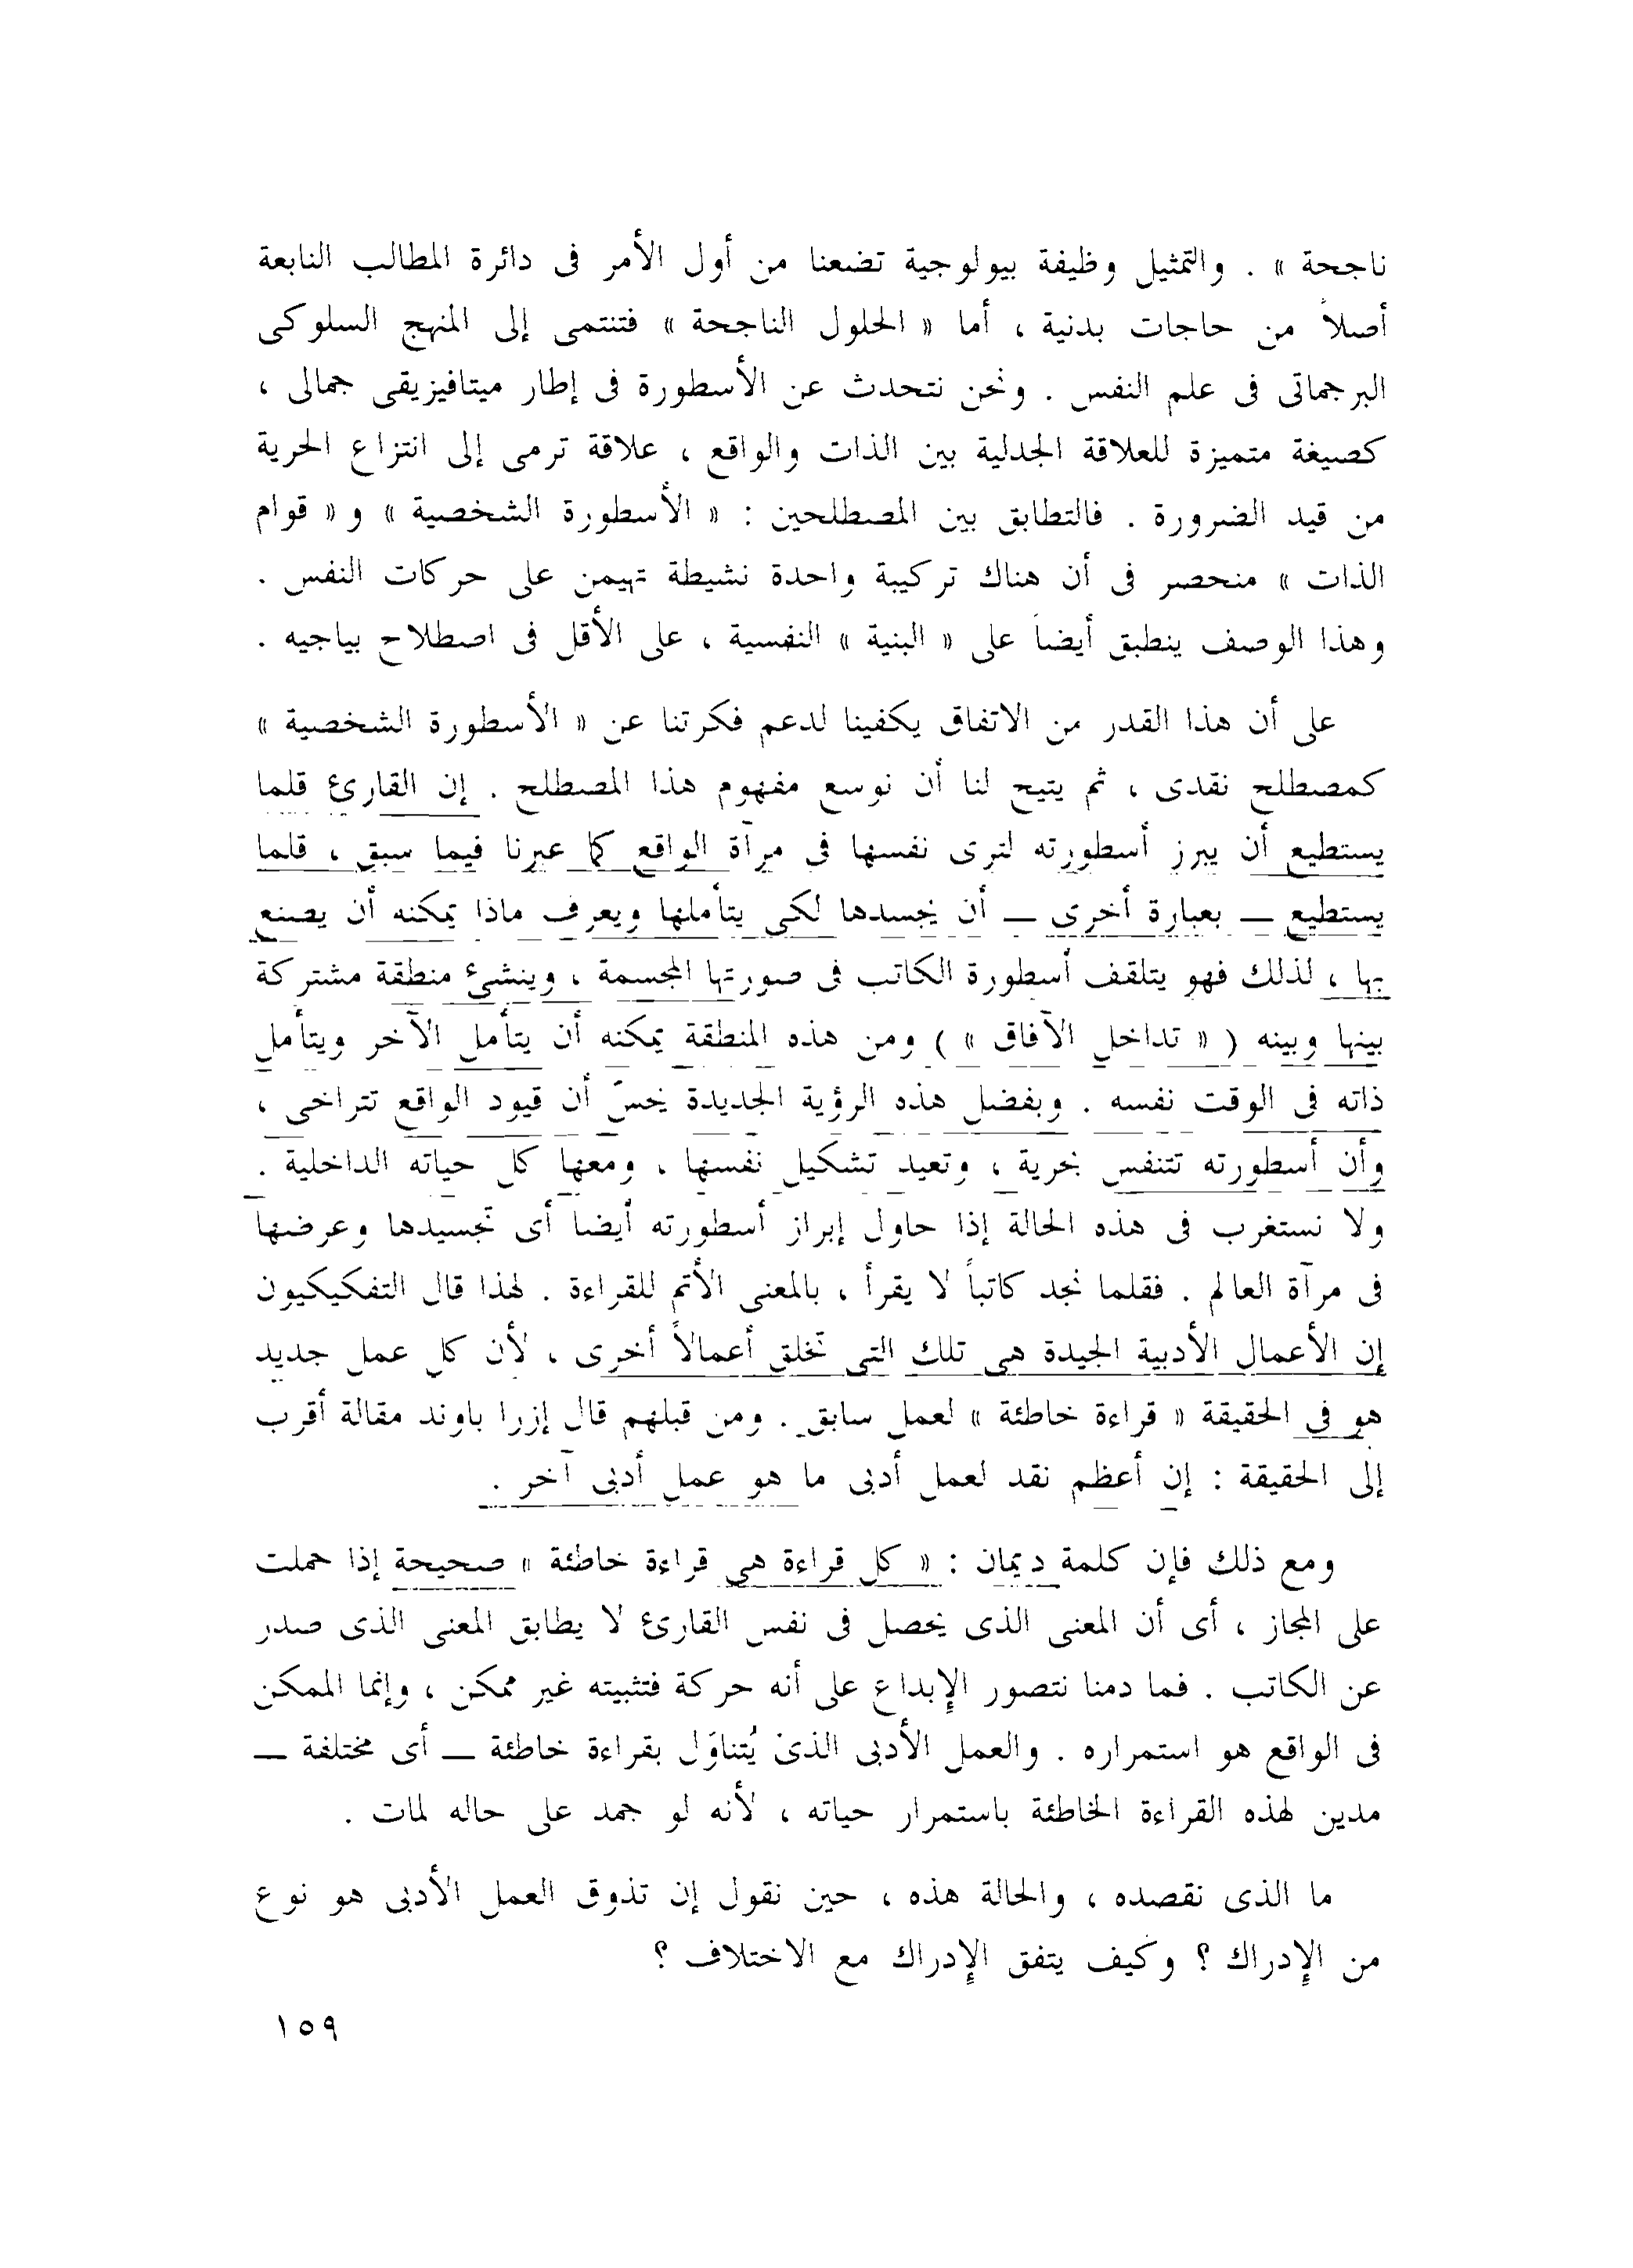 ناجحة » . والتمثيل وظيفة بيولوجية تضعنا من أول الأمر فى دائرة المطالب النابعة
أصلاً من حاجات بدنية ، أما « الحلول الناجحة » فتنتمى إلى المنهج السلوكى
البرجماتى فى علم النفس . ونحن نتحدث عن الأسطورة فى إطار ميتافيزيقى جمالى ،
كصيغة متميزة للعلاقة الجدلية بين الذات والواقع ، علاقة ترمى إلى انتزاع الحرية
من قيد الضرورة . فالتطابق بين المصطلحين : « الأسطورة الشخصية » و « قوام
الذات » منحصر فى أن هناك تركيبة واحدة نشيطة تهيمن على حركات النفس .
وهذا الوصف ينطبق أيضاً على « البنية » النفسية ، على الأقل فى اصطلاح بياجيه .
على أن هذا القدر من الاتفاق يكفينا لدعم فكرتنا عن « الأسطورة الشخصية »
كمصطلح نقدى ، ثم يتيح لنا أن نوسع مفهوم هذا المصطلح . إن القارئ قلما
يستطيع أن يبرز أسطورته لترى نفسها فى مرآة الواقع كما عبرنا فيما سبق ، قلما
يستطيع — بعبارة أخرى — أن يجسدها لكى يتأملها ويعرف ماذا يمكنه أن يصنع
بها ، لذلك فهو يتلقف أسطورة الكاتب فى صورتها المجسمة ، وينشئ منطقة مشتركة
بينها وبينه ( « تداخل الآفاق » ) ومن هذه المنطقة يمكنه أن يتأمل الآخر ويتأمل
ذاته فى الوقت نفسه . وبفضل هذه الرؤية الجديدة يحسّ أن قيود الواقع تتراخى ،
وأن أسطورته تتنفس بحرية ، وتعيد تشكيل نفسها ، ومعها كل حياته الداخلية .
ولا نستغرب فى هذه الحالة إذا حاول إبراز أسطورته أيضا أى تجسيدها وعرضها
فى مرآة العالم . فقلما نجد كاتباً لا يقرأ ، بالمعنى الأتم للقراءة . لهذا قال التفكيكيون
إن الأعمال الأدبية الجيدة هى تلك التى تخلق أعمالاً أخرى ، لأن كل عمل جديد
هو فى الحقيقة « قراءة خاطئة » لعمل سابق . ومن قبلهم قال إزرا باوند مقالة أقرب
إلى الحقيقة : إن أعظم نقد لعمل أدبى ما هو عمل أدبى آخر .
ومع ذلك فإن كلمة ديمان : « كل قراءة هى قراءة خاطئة » صحيحة إذا حملت
على المجاز ، أى أن المعنى الذى يحصل فى نفس القارئ لا يطابق المعنى الذى صدر
عن الكاتب . فما دمنا نتصور الإبداع على أنه حركة فتثبيته غير ممكن ، وإنما الممكن
فى الواقع هو استمراره . والعمل الأدبى الذى يُتناوَل بقراءة خاطئة — أى مختلفة —
مدين لهذه القراءة الخاطئة باستمرار حياته ، لأنه لو جمد على حاله لمات .
ما الذى نقصده ، والحالة هذه ، حين نقول إن تذوق العمل الأدبى هو نوع
من الإدراك ؟ وكيف يتفق الإدراك مع الاختلاف ؟
١٥٩